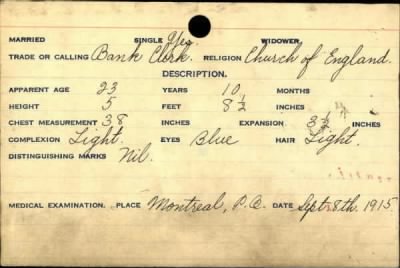 MARRIED SINGLE Yes. WIDOWER.
TRADE OR CALLING Bank Clerk. RELIGION Church of England.
DESCRIPTION.
APPARENT AGE 23 YEARS 10 MONTHS
HEIGHT 5 FEET 8½ INCHES
CHEST MEASUREMENT 38 INCHES EXPANSION 3½ INCHES
COMPLEXION Light. EYES Blue HAIR Light.
DISTINGUISHING MARKS Nil.
MEDICAL EXAMINATION. PLACE Montreal, P.Q. DATE Sept. 8th. 1915